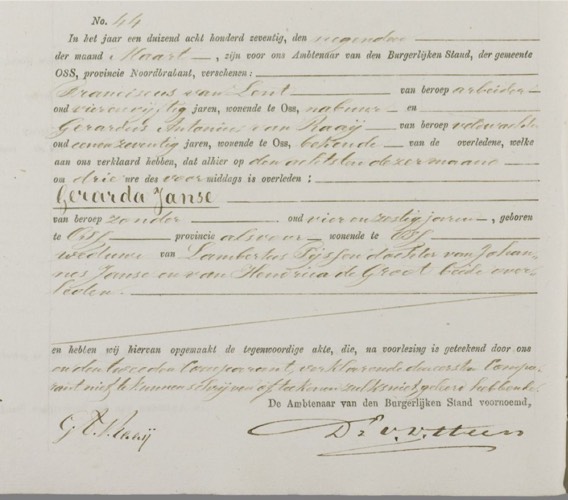 No. 44
In het jaar een duizend acht honderd zeventig, den negenden
der maand Maart, zijn voor ons Ambtenaar van den Burgerlijken Stand, der gemeente
OSS, provincie Noordbrabant, verschenen:
Franciscus van Lent van beroep arbeider
oud vierenvijftig jaren, wonende te Oss, nabuur en
Gerardus Antonius van Raaij van beroep veldwachter
oud eenenzeventig jaren, wonende te Oss, bekende van de overledene, welke
aan ons verklaard hebben, dat alhier op den achtsten dezer maand
om drie ure des voor middags is overleden:
Gerarda Janse
van beroep zonder oud vier en zestig jaren, geboren
te Oss provincie alsvoor wonende te Oss
weduwe van Lambertus Tijssen dochter van Johan-
nes Janse en van Hendrica de Groot beide over-
leden.
en hebben wij hiervan opgemaakt de tegenwoordige akte, die, na voorlezing is geteekend door ons
en den tweeden Comparant, verklarende de eerste Compa-
rant niet te kunnen schrijven of teekenen zulks niet geleerd hebbende.
De Ambtenaar van den Burgerlijken Stand voornoemd,
G A V Raaij